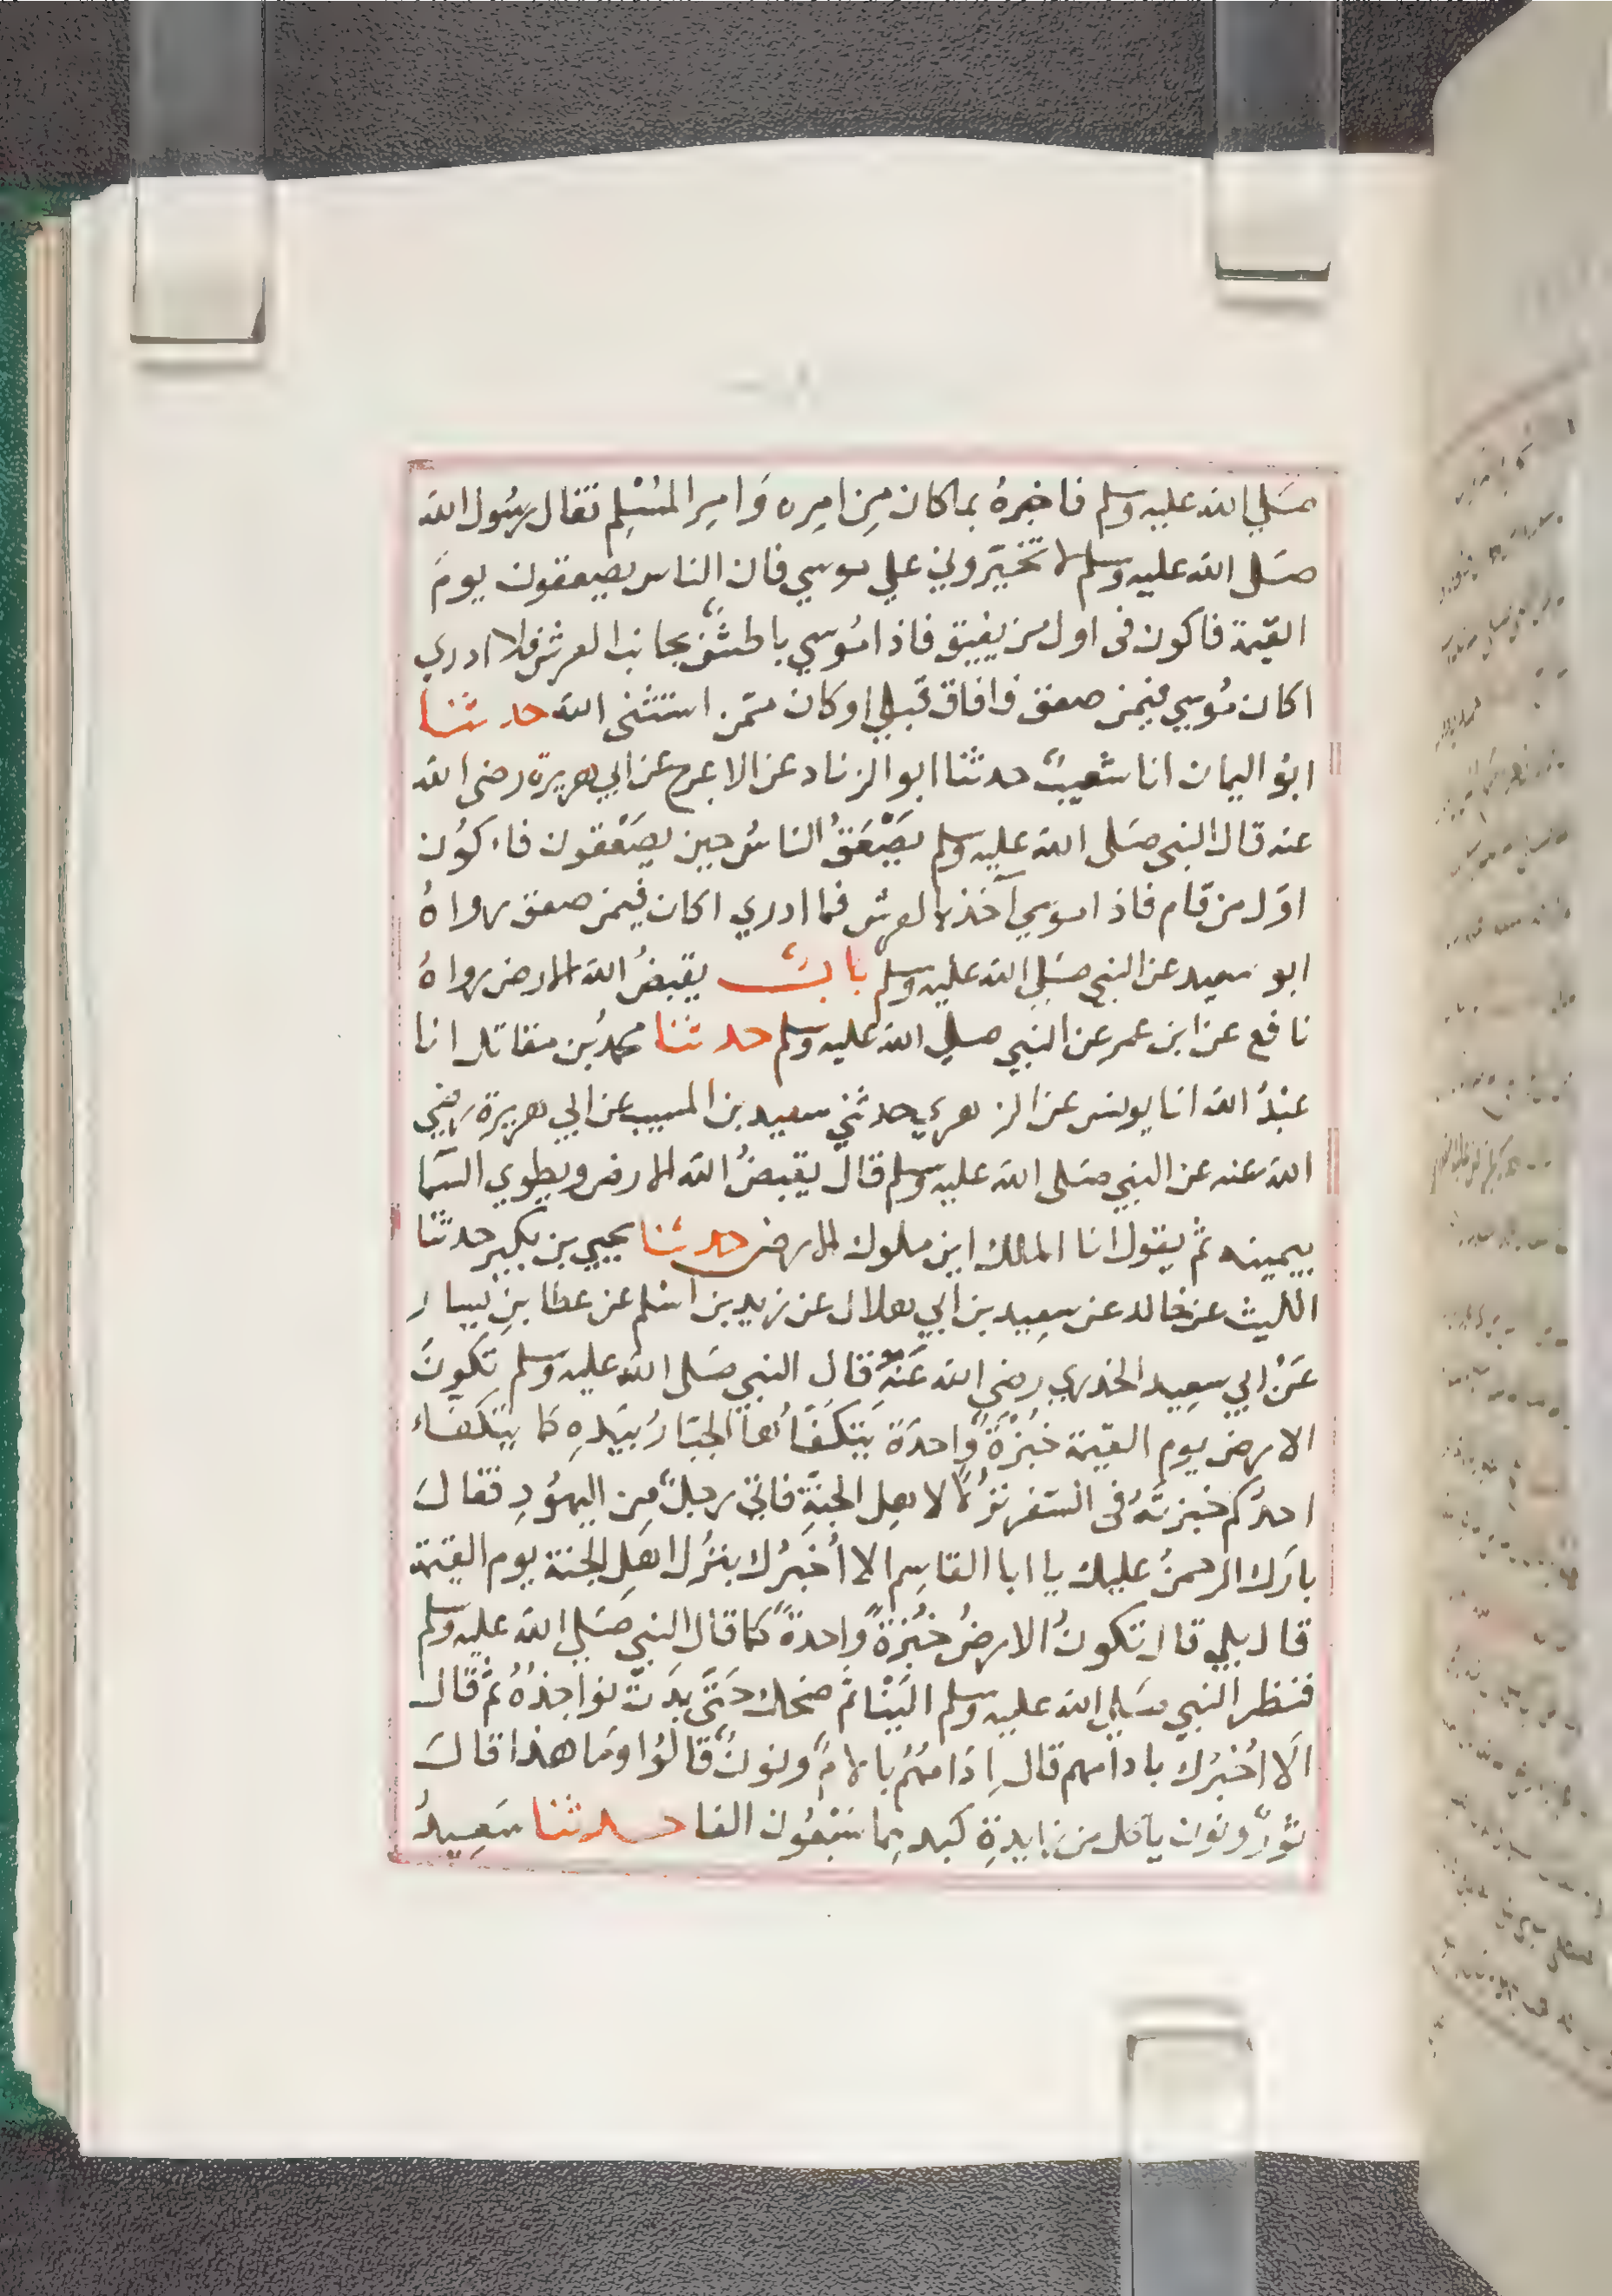 صَلي الله عليه وسلم فاخبرهُ بما كان مِن امِره وَامِر المُسْلِم فقال رسُول الله
صَلى الله عليه وسلم لا تخيّروني علي موسي فان الناس يصعقون يومَ
القيمة فاكون في اول من يفيق فاذا مُوسي باطشٌ بجانب العرش فلا ادري
اكان مُوسي فيمن صعق فافاق قبلي او كان ممّن استثنى الله حدثنا
ابوُ اليمان انا شعيبٌ حدثنا ابو الزناد عن الاعرج عن ابي هريرة رضى الله
عنه قال النبي صَلى الله عليه وسلم يصَْعَقُ الناسُ حين يصَعْقون فاكوُن
اوّل من قام فاذا موسي آخذ بالعرش فما ادري اكان فيمن صعق رواهُ
ابو سعيد عن النبي صَلي الله عليه وسلم بابٌ يقبضُ الله الارض رواهُ
نافع عن ابن عمر عن النبي صلي الله عليه وسلم حدثنا محمدُ بن مقاتل انا
عبْدُ الله انا يونس عن الزهري حدثني سعيد بن المسيب عن ابي هريرة رضي
الله عنه عن النبي صَلى الله عليه وسلم قال يقبضُ الله الارض ويطوي السّما
بيمينه ثم يقول انا الملك اين ملوك الارض حدثنا يحيي بن بكير حدثنا
الليث عن خالد عن سعِيد بن ابي هلال عن زيد بن اسْلم عن عطا بنِ يسار
عَنْ ابي سعِيد الخدري رضي الله عَنهُ قال النبي صَلى الله عليه وسلم تكونُ
الارض يوم القيمة خبُزْةً وَّاحدَة يَتكفَّأُها الجبَارُ بيَدِهِ كما يتكفاء
احدُكم خبزتَهُ في السّفر نزُلاً لاهل الجنةِ فاتى رجلٌ مِن اليهوُدِ فقالَ
بارَك الرحمنُ عليك يا ابا القاسِم الا اُخبرُك بنزُل اهلِ الجنة يوم القيمة
قال بلي قال تكونُ الارضُ خبُزةً وَّاحدةً كما قال النبي صَلي الله عليه وسلم
فنظر النبي صَلي الله عليه وسلم اليَنْا ثم ضحك حَتّى بدَت نواجذُهُ ثم قال
اَلا اُخبْرُك بادامهم قال اِدَامهُمُ بالامٌ ونونٌ قالوُا ومَا هذا قالَ
ثورٌ ونون ياكل من زايدةِ كبد هِما سَبْعُون الفا حدثنا سَعِيدُ